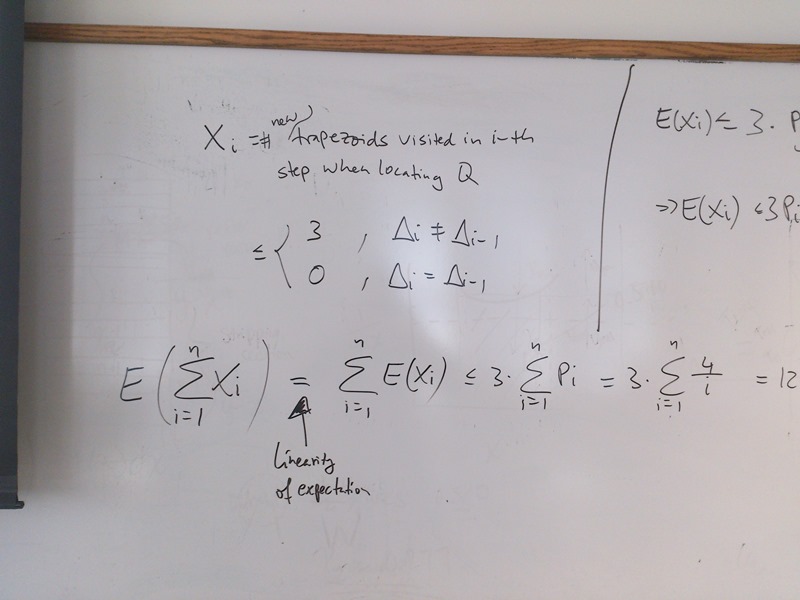 Xi = # new trapezoids visited in i-th
step when locating Q
≤ { 3 , Δi ≠ Δi-1
0 , Δi = Δi-1
E(Xi) ≤ 3 · P
=> E(Xi) ≤ 3Pi
E(∑_{i=1}^{n} Xi) = ∑_{i=1}^{n} E(Xi) ≤ 3 · ∑_{i=1}^{n} Pi = 3 · ∑_{i=1}^{n} 4/i = 12
Linearity
of expectation